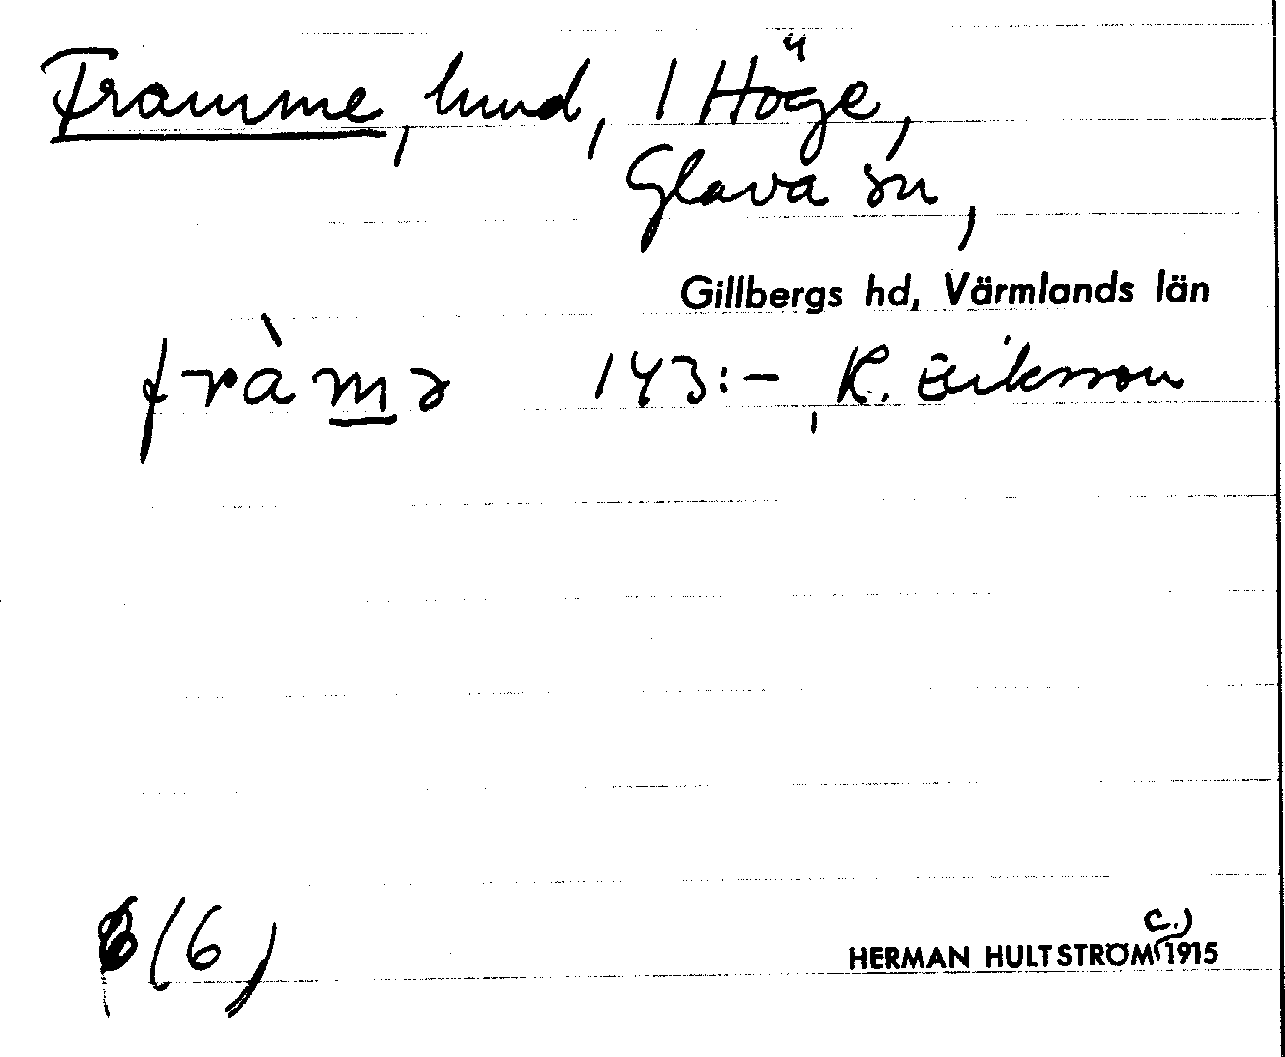 Framme, hund, 1 Höge,
Glava sn,
Gillbergs hd, Värmlands län
fràmə 143:-, R. Eriksson
(6)
HERMAN HULTSTRÖM (c.) 1915